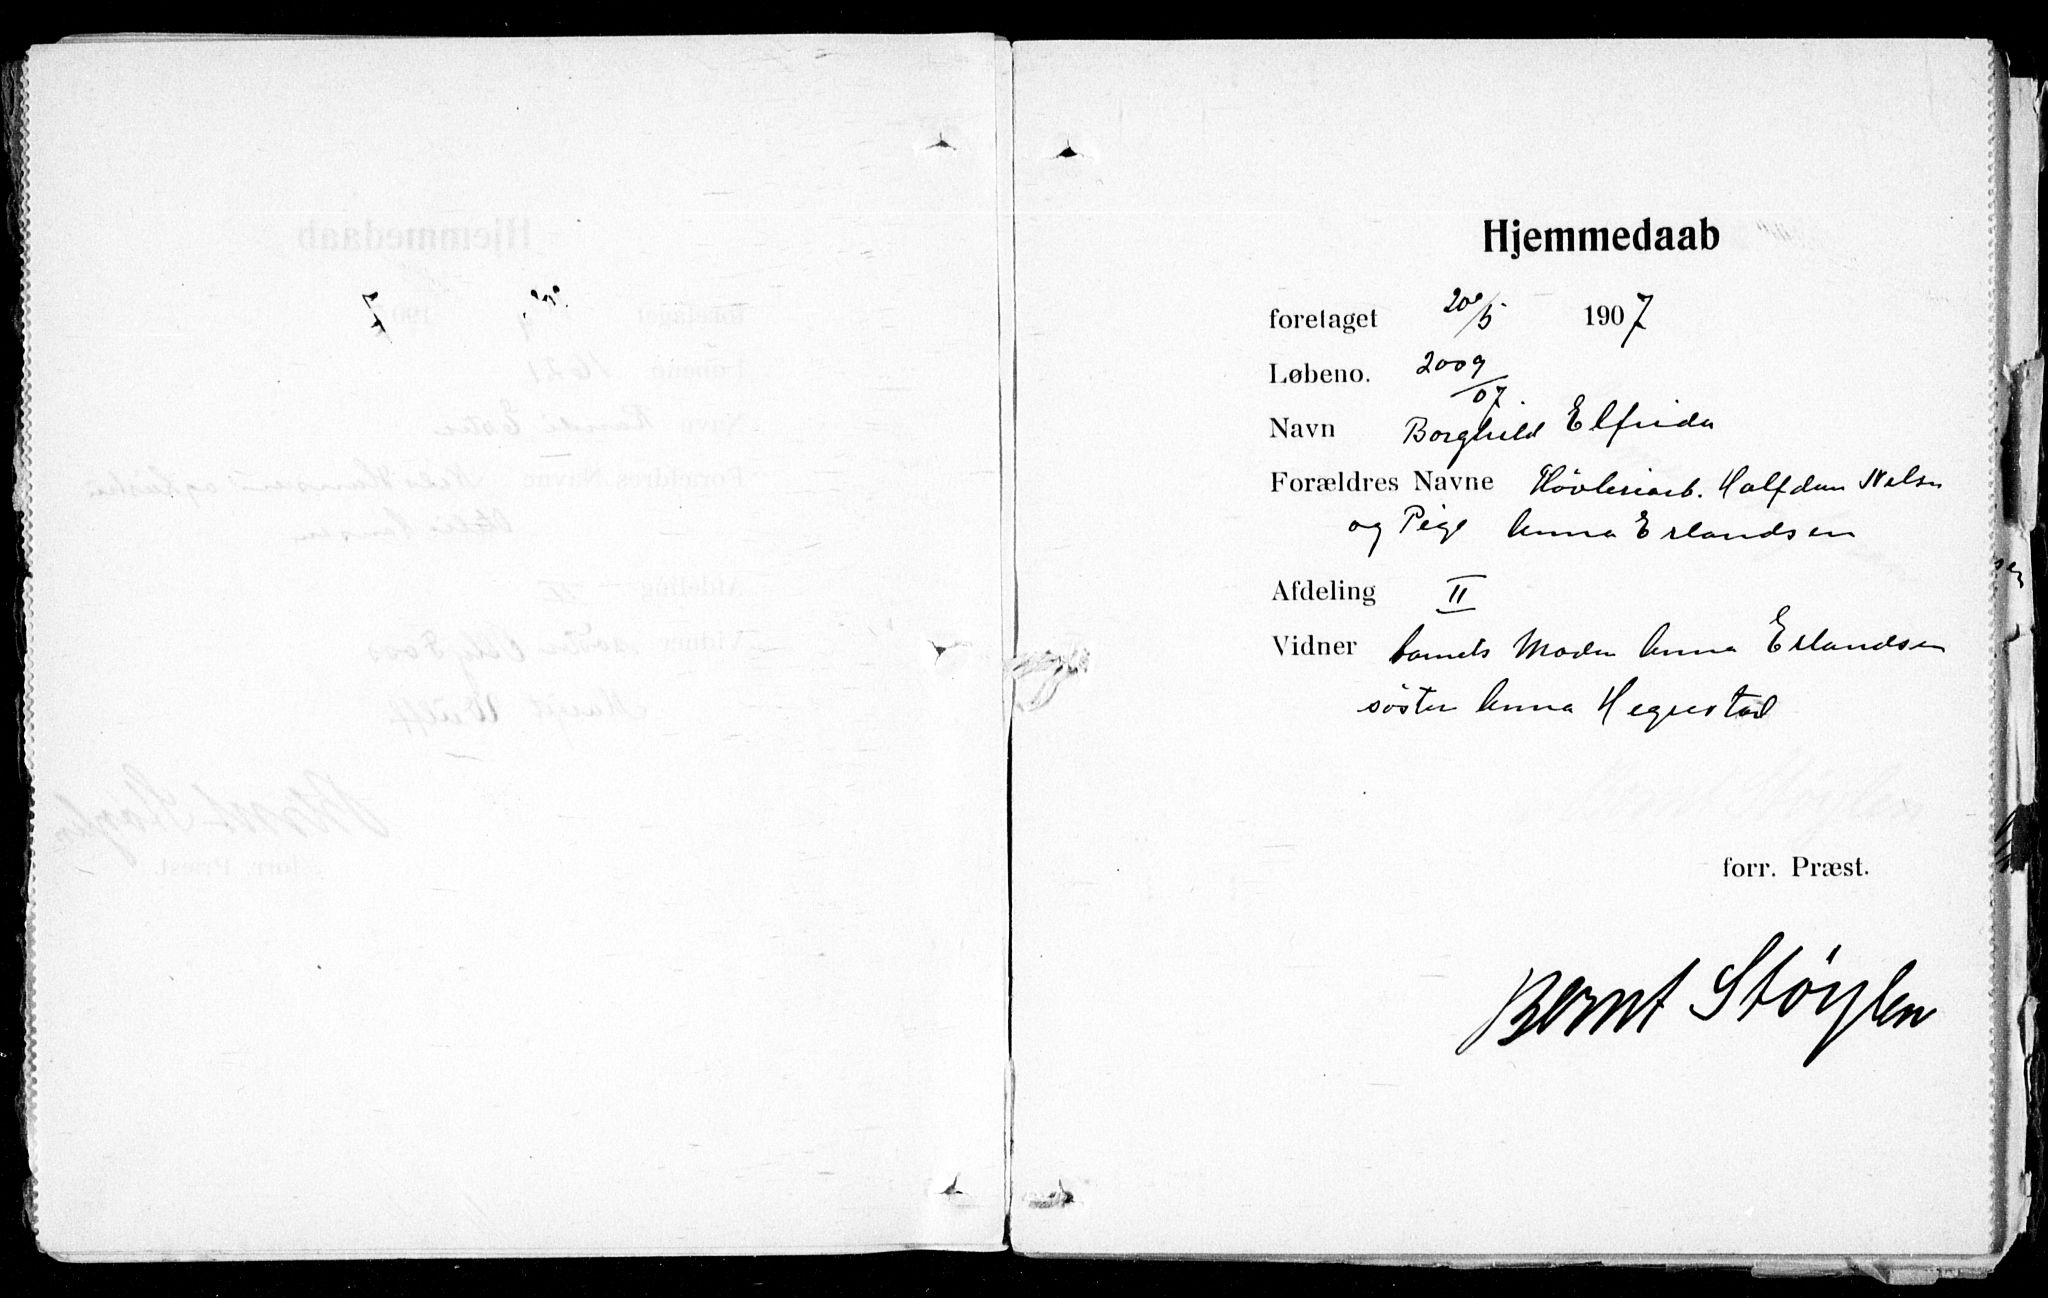 Hjemmedaab
foretaget 20/5 1907
Løbeno. 2009/07.
Navn Borghild Elfrida
Forældres Navne Høvleriarb. Halfdan Nelsen
og Pige Anna Erlandsen
Afdeling II
Vidner barnets Moder Anna Erlandsen
søster Anna Hegrestad
forr. Præst.
Bernt Støylen